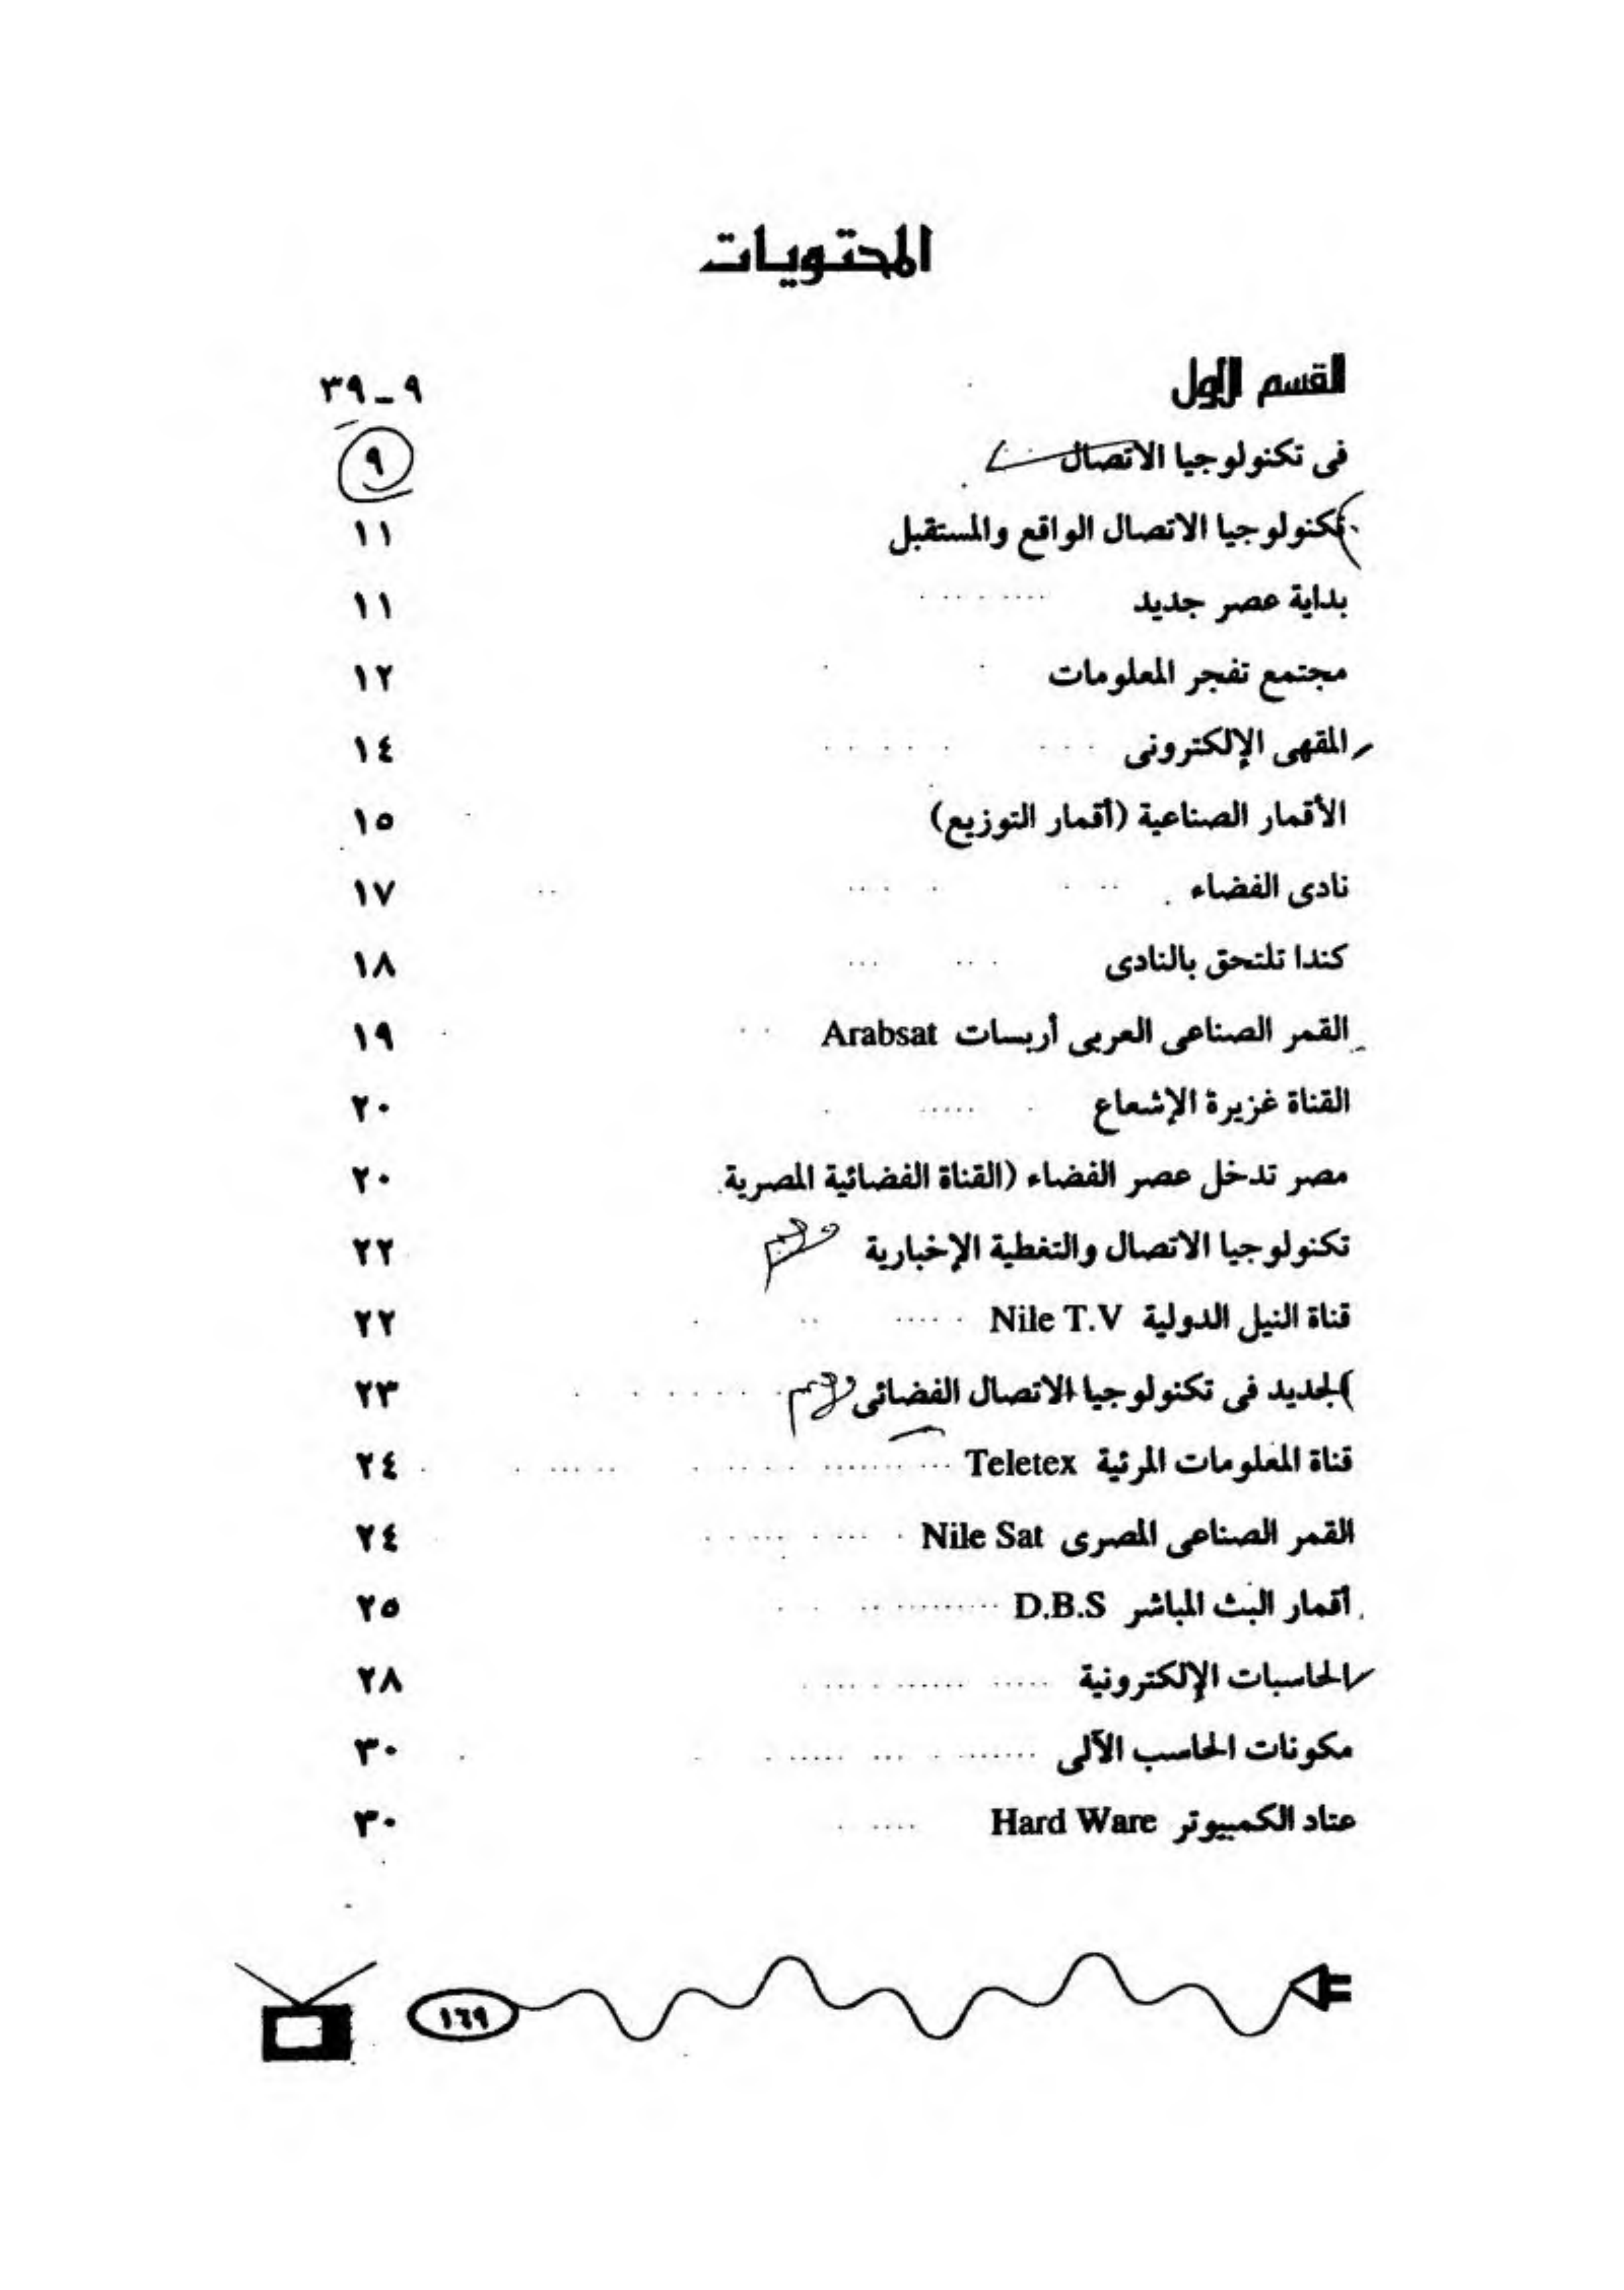 المحتويات
القسم الأول ٩ ـ ٣٩
فى تكنولوجيا الاتصال ٩
تكنولوجيا الاتصال الواقع والمستقبل ١١
بداية عصر جديد ١١
مجتمع تفجر المعلومات ١٢
المقهى الإلكترونى ١٤
الأقمار الصناعية (أقمار التوزيع) ١٥
نادى الفضاء ١٧
كندا تلتحق بالنادى ١٨
القمر الصناعى العربى أربسات Arabsat ١٩
القناة غزيرة الإشعاع ٢٠
مصر تدخل عصر الفضاء (القناة الفضائية المصرية ٢٠
تكنولوجيا الاتصال والتغطية الإخبارية ٢٢
قناة النيل الدولية Nile T.V ٢٢
الجديد فى تكنولوجيا الاتصال الفضائى ٢٣
قناة المعلومات المرئية Teletex ٢٤
القمر الصناعى المصرى Nile Sat ٢٤
أقمار البث المباشر D.B.S ٢٥
الحاسبات الإلكترونية ٢٨
مكونات الحاسب الآلى ٣٠
عتاد الكمبيوتر Hard Ware ٣٠
١٦٩